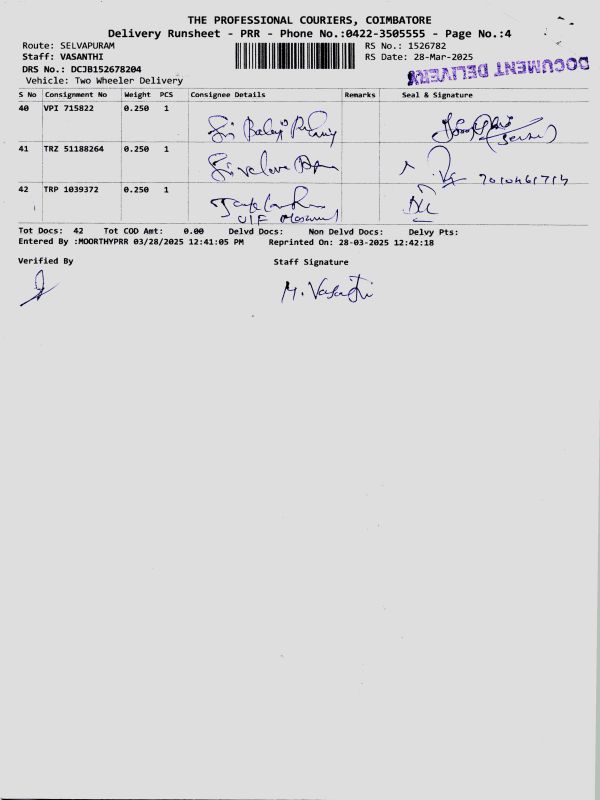 THE PROFESSIONAL COURIERS, COIMBATORE
Delivery Runsheet - PRR - Phone No.:0422-3505555 - Page No.:4
Route: SELVAPURAM RS No.: 1526782
Staff: VASANTHI RS Date: 28-Mar-2025
DRS No.: DCJB152678204
Vehicle: Two Wheeler Delivery
DOCUMENT DELIVERY
S No Consignment No Weight PCS Consignee Details Remarks Seal & Signature
40 VPI 715822 0.250 1 Sri Balaji
41 TRZ 51188264 0.250 1
42 TRP 1039372 0.250 1
Tot Docs: 42 Tot COD Amt: 0.00 Delvd Docs: Non Delvd Docs: Delvy Pts:
Entered By :MOORTHYPRR 03/28/2025 12:41:05 PM Reprinted On: 28-03-2025 12:42:18
Verified By Staff Signature
M. Vasanthi